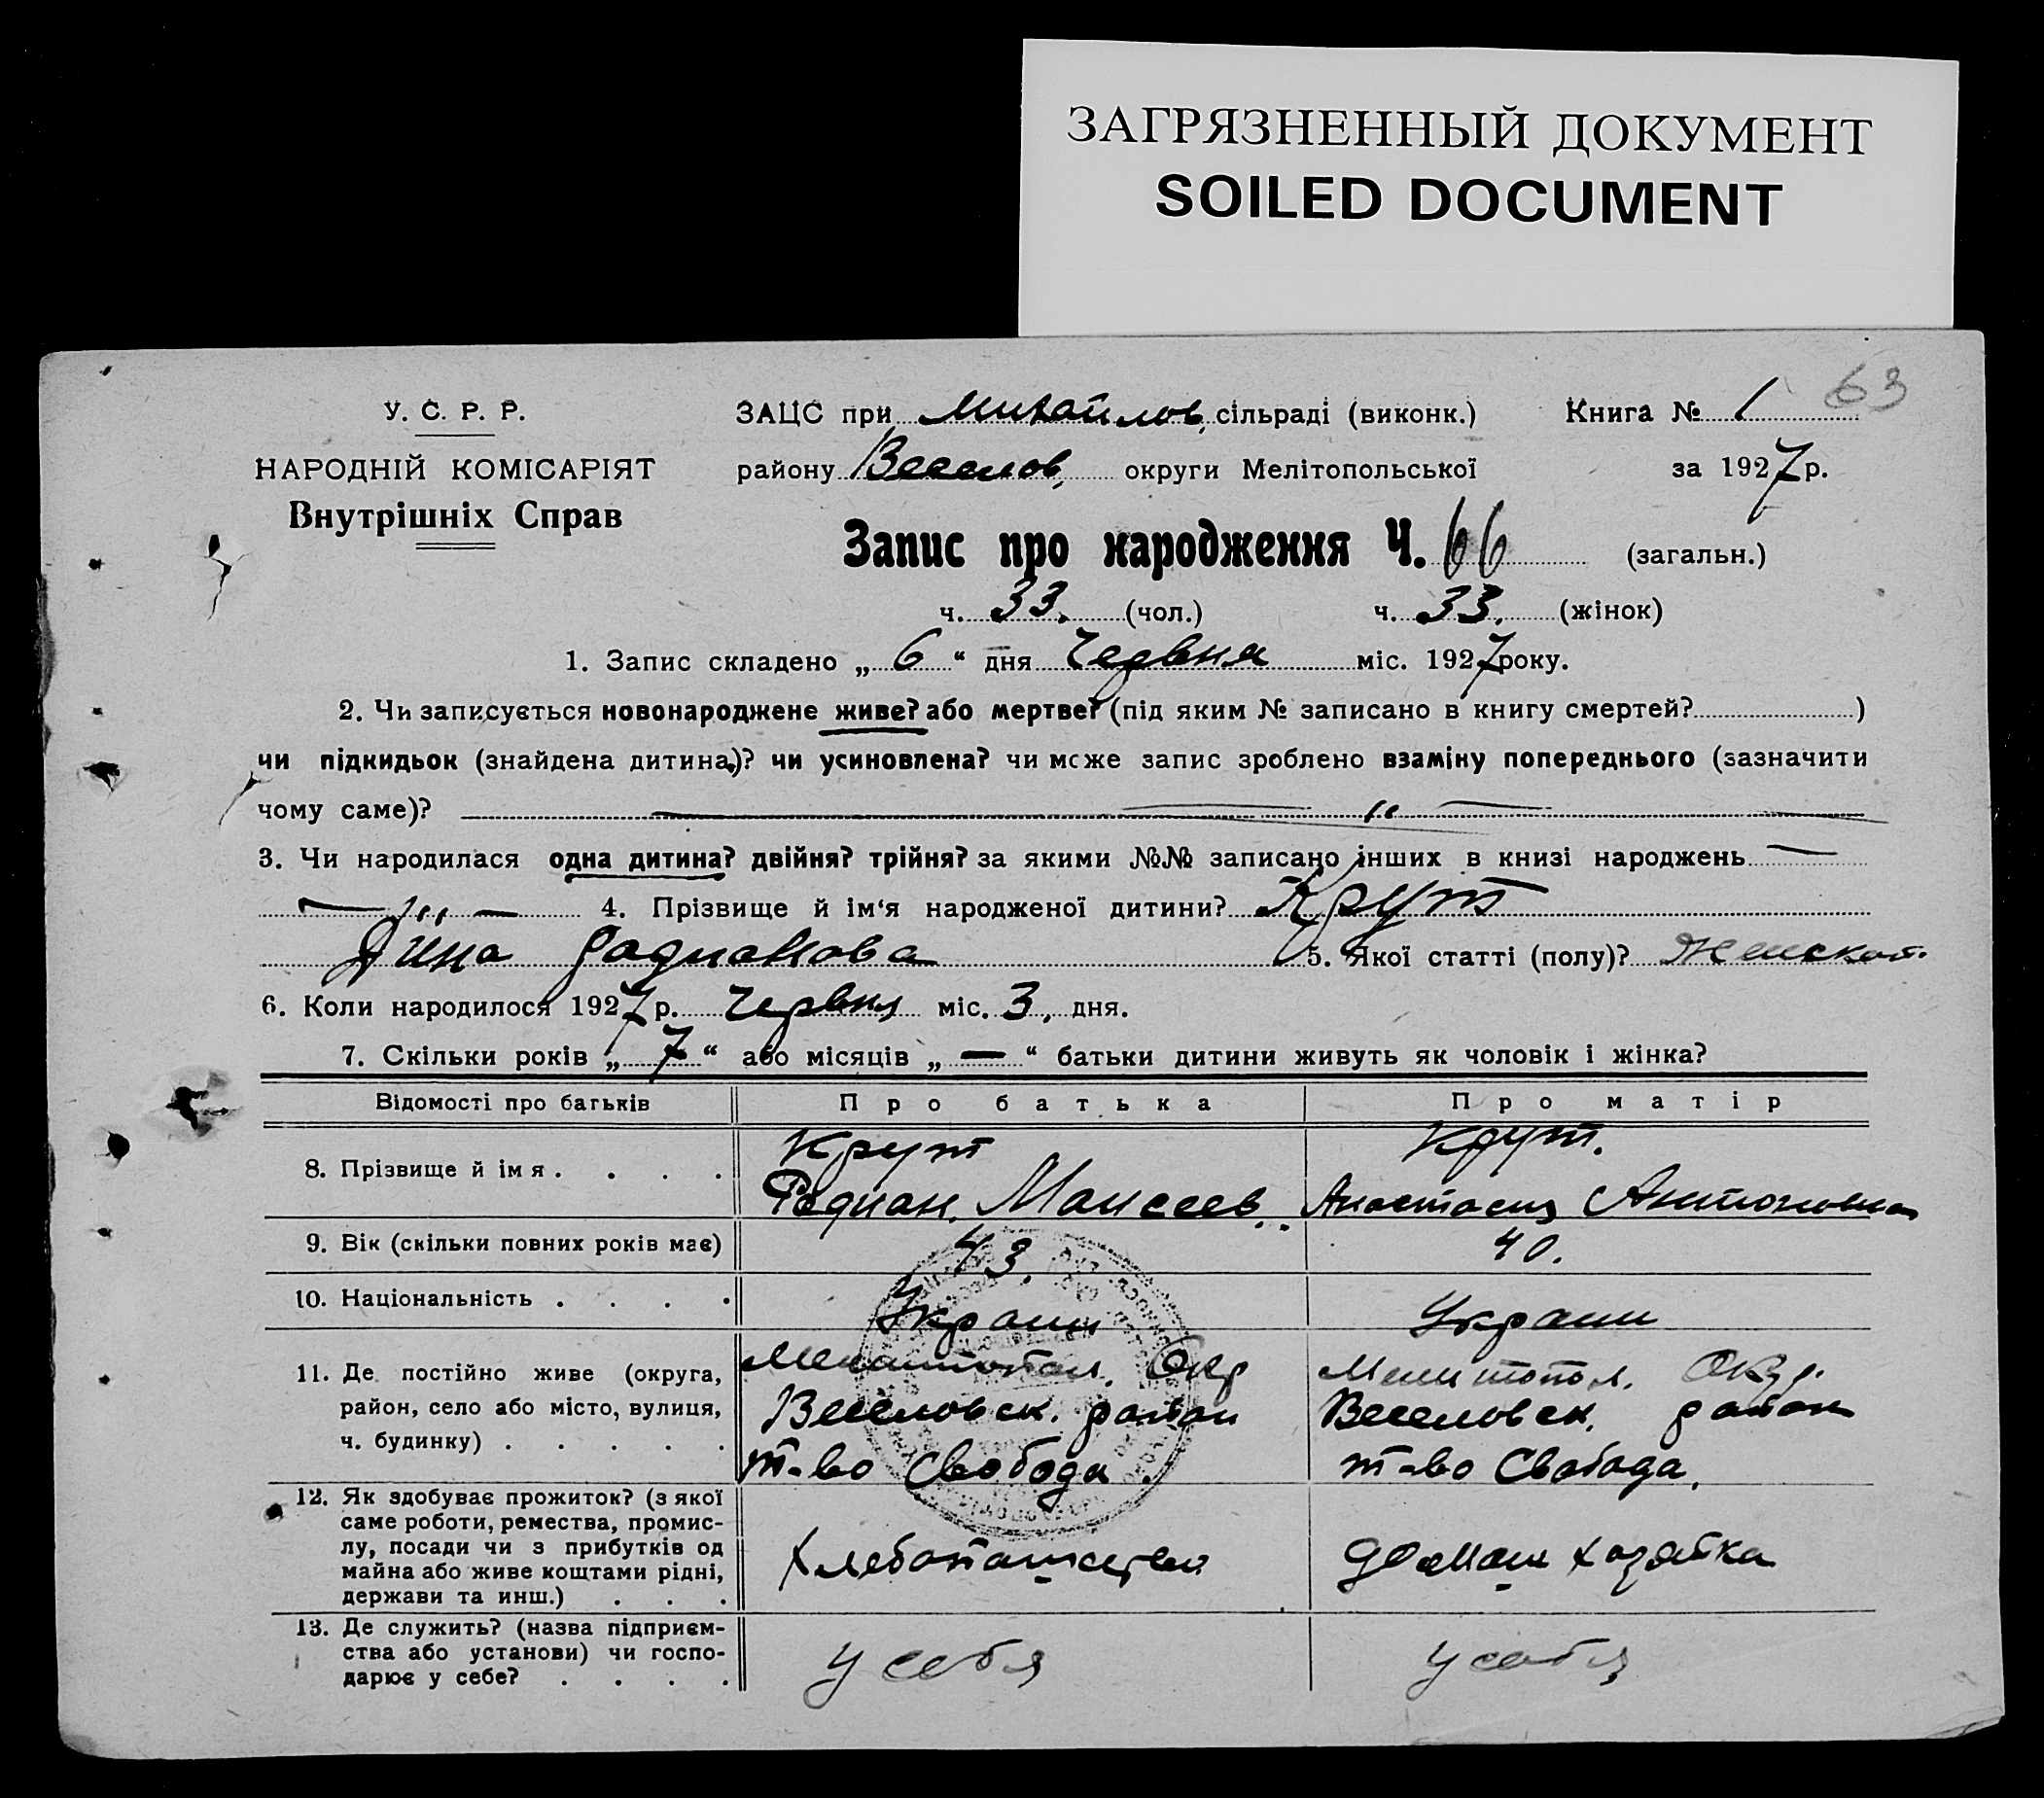 ЗАГРЯЗНЕННЫЙ ДОКУМЕНТ
SOILED DOCUMENT
63
У. С. Р. Р.
НАРОДНІЙ КОМІСАРІЯТ
Внутрішніх Справ
ЗАЦС при Михайлов. сільраді (виконк.) Книга № 1
району Веселов. округи Мелітопольської за 1927 р.
Запис про народження Ч. 66 (загальн.)
ч. 33. (чол.) ч. 33. (жінок)
1. Запис складено „ 6 “ дня Червня міс. 1927 року.
2. Чи записується новонароджене живе? або мертве? (під яким № записано в книгу смертей? )
чи підкидьок (знайдена дитина)? чи усиновлена? чи може запис зроблено взаміну попереднього (зазначити
чому саме)? — „ —
3. Чи народилася одна дитина? двійня? трійня? за якими №№ записано інших в книзі народжень —
— „ — 4. Прізвище й ім‘я народженої дитини? Крут
Діна Радионова 5. Якої статті (полу)? Женской.
6. Коли народилося 1927 р. Червня міс. 3, дня.
7. Скільки років „ 7 “ або місяців „ — “ батьки дитини живуть як чоловік і жінка?
Відомості про батьків Про батька Про матір
8. Прізвище й імя . . . . Крут Родиан. Моисеев. Крут. Анастасия Антоновна
9. Вік (скільки повних років має) 43. 40.
10. Національність . . . . Украин Украин
11. Де постійно живе (округа,
район, село або місто, вулиця,
ч. будинку) . . . . .
Мелитопол. Окр
Веселовск. район
т-во Свобода.
Мелитопол. Окр.
Веселовск. район
т-во Свобода.
12. Як здобуває прожиток? (з якої
саме роботи, ремества, промис-
лу, посади чи з прибутків од
майна або живе коштами рідні,
держави та инш.) . . .
Хлебопашество
домаш хозяйка
13. Де служить? (назва підприєм-
ства або установи) чи госпо-
дарює у себе? . . . .
у себя
у себя